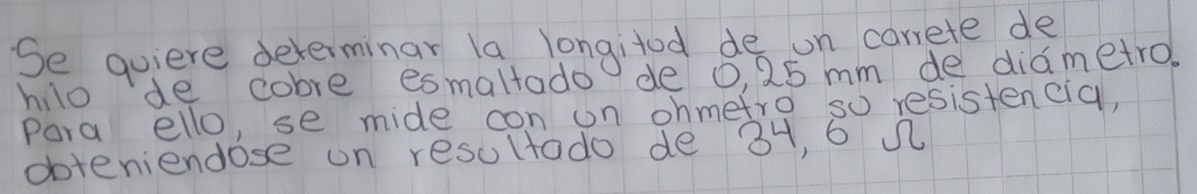 Se quiere determinar la longitud de un carrete de
hilo de cobre esmaltado de 0,25 mm de diámetro.
Para ello, se mide con un ohmetro su resistencia,
obteniendose un resultado de 34,6 Ω